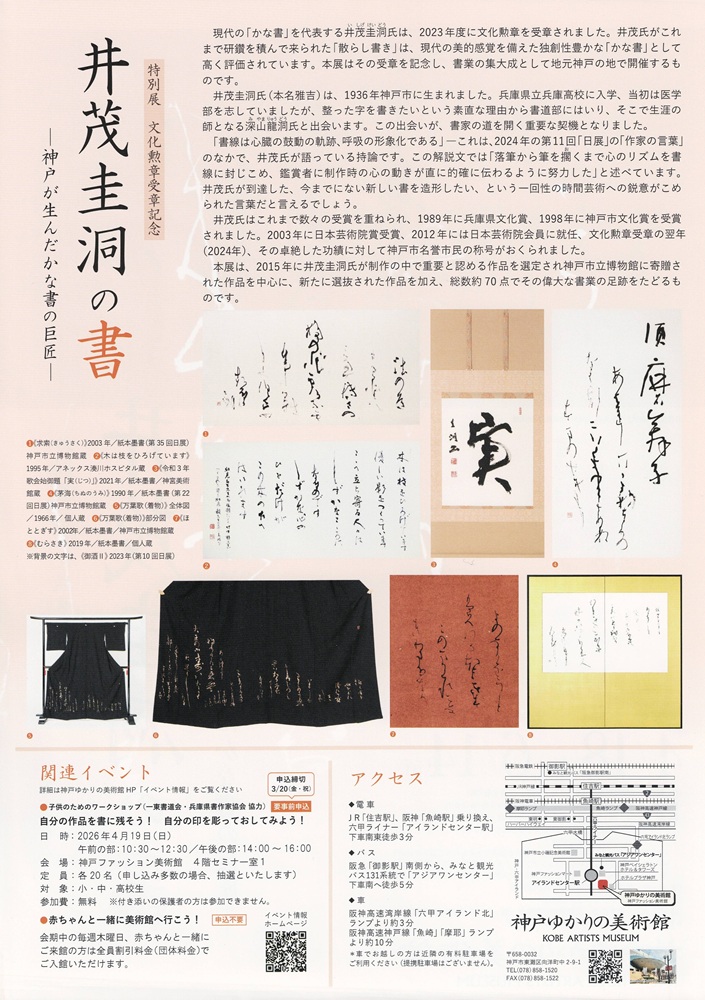 特別展 文化勲章受章記念
井茂圭洞の書
―神戸が生んだかな書の巨匠―
現代の「かな書」を代表する井茂圭洞氏は、2023年度に文化勲章を受章されました。井茂氏がこれ
まで研鑽を積んで来られた「散らし書き」は、現代の美的感覚を備えた独創性豊かな「かな書」として
高く評価されています。本展はその受章を記念し、書業の集大成として地元神戸の地で開催するも
のです。
井茂圭洞氏(本名雅吉)は、1936年神戸市に生まれました。兵庫県立兵庫高校に入学、当初は医学
部を志していましたが、整った字を書きたいという素直な理由から書道部にはいり、そこで生涯の
師となる深山龍洞氏と出会います。この出会いが、書家の道を開く重要な契機となりました。
「書線は心臓の鼓動の軌跡、呼吸の形象化である」―これは、2024年の第11回「日展」の「作家の言葉」
のなかで、井茂氏が語っている持論です。この解説文では「落筆から筆を擱くまで心のリズムを書
線に封じこめ、鑑賞者に制作時の心の動きが直に的確に伝わるように努力した」と述べています。
井茂氏が到達した、今までにない新しい書を造形したい、という一回性の時間芸術への鋭意がこめ
られた言葉だと言えるでしょう。
井茂氏はこれまで数々の受賞を重ねられ、1989年に兵庫県文化賞、1998年に神戸市文化賞を受賞
されました。2003年に日本芸術院賞受賞、2012年には日本芸術院会員に就任、文化勲章受章の翌年
(2024年)、その卓絶した功績に対して神戸市名誉市民の称号がおくられました。
本展は、2015年に井茂圭洞氏が制作の中で重要と認める作品を選定され神戸市立博物館に寄贈さ
れた作品を中心に、新たに選抜された作品を加え、総数約70点でその偉大な書業の足跡をたどるも
のです。
❶《求索(きゅうさく)》2003年/紙本墨書(第35回日展)
神戸市立博物館蔵 ❷《木は枝をひろげています》
1995年/アネックス湊川ホスピタル蔵 ❸《令和3年
歌会始御題「実(じつ)」》2021年/紙本墨書/神宮美術
館蔵 ❹《茅海(ちぬのうみ)》1990年/紙本墨書(第22
回日展)神戸市立博物館蔵 ❺《万葉歌(着物)》全体図
/1966年/個人蔵 ❻《万葉歌(着物)》部分図 ❼《ほ
ととぎす》2002年/紙本墨書/神戸市立博物館蔵
❽《むらさき》2019年/紙本墨書/個人蔵
※背景の文字は、《御酒Ⅱ》2023年(第10回日展)
実
❶
❷
❸
❹
❺
❻
❼
❽
関連イベント
詳細は神戸ゆかりの美術館HP「イベント情報」をご覧ください
申込締切
3/20(金・祝)
●子供のためのワークショップ(一東書道会・兵庫県書作家協会 協力) 要事前申込
自分の作品を書に残そう! 自分の印を彫っておしてみよう!
日 時:2026年4月19日(日)
午前の部:10:30~12:30/午後の部:14:00~16:00
会 場:神戸ファッション美術館 4階セミナー室1
定 員:各20名(申し込み多数の場合、抽選といたします)
対 象:小・中・高校生
参加費:無料 ※付き添いの保護者の方は参加できません。
●赤ちゃんと一緒に美術館へ行こう! 申込不要
会期中の毎週木曜日、赤ちゃんと一緒に
ご来館の方は全員割引料金(団体料金)で
ご入館いただけます。
イベント情報
ホームページ
アクセス
◆電車
JR「住吉駅」、阪神「魚崎駅」乗り換え、
六甲ライナー「アイランドセンター駅」
下車南東徒歩3分
◆バス
阪急「御影駅」南側から、みなと観光
バス131系統で「アジアワンセンター」
下車南へ徒歩5分
◆車
阪神高速湾岸線「六甲アイランド北」
ランプより約3分
阪神高速神戸線「魚崎」「摩耶」ランプ
より約10分
*車でお越しの方は近隣の有料駐車場を
ご利用ください(提携駐車場はございません)。
御影駅
住吉駅
魚崎駅
アイランドセンター駅
神戸ゆかりの美術館
神戸ファッション美術館
神戸ゆかりの美術館
KOBE ARTISTS MUSEUM
〒658-0032
神戸市東灘区向洋町中2-9-1
TEL(078)858-1520
FAX(078)858-1522